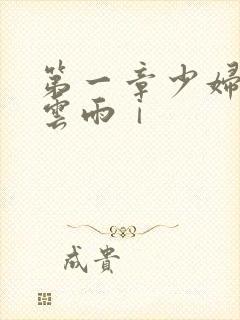 第一章少婦
雲雨｜
成貴